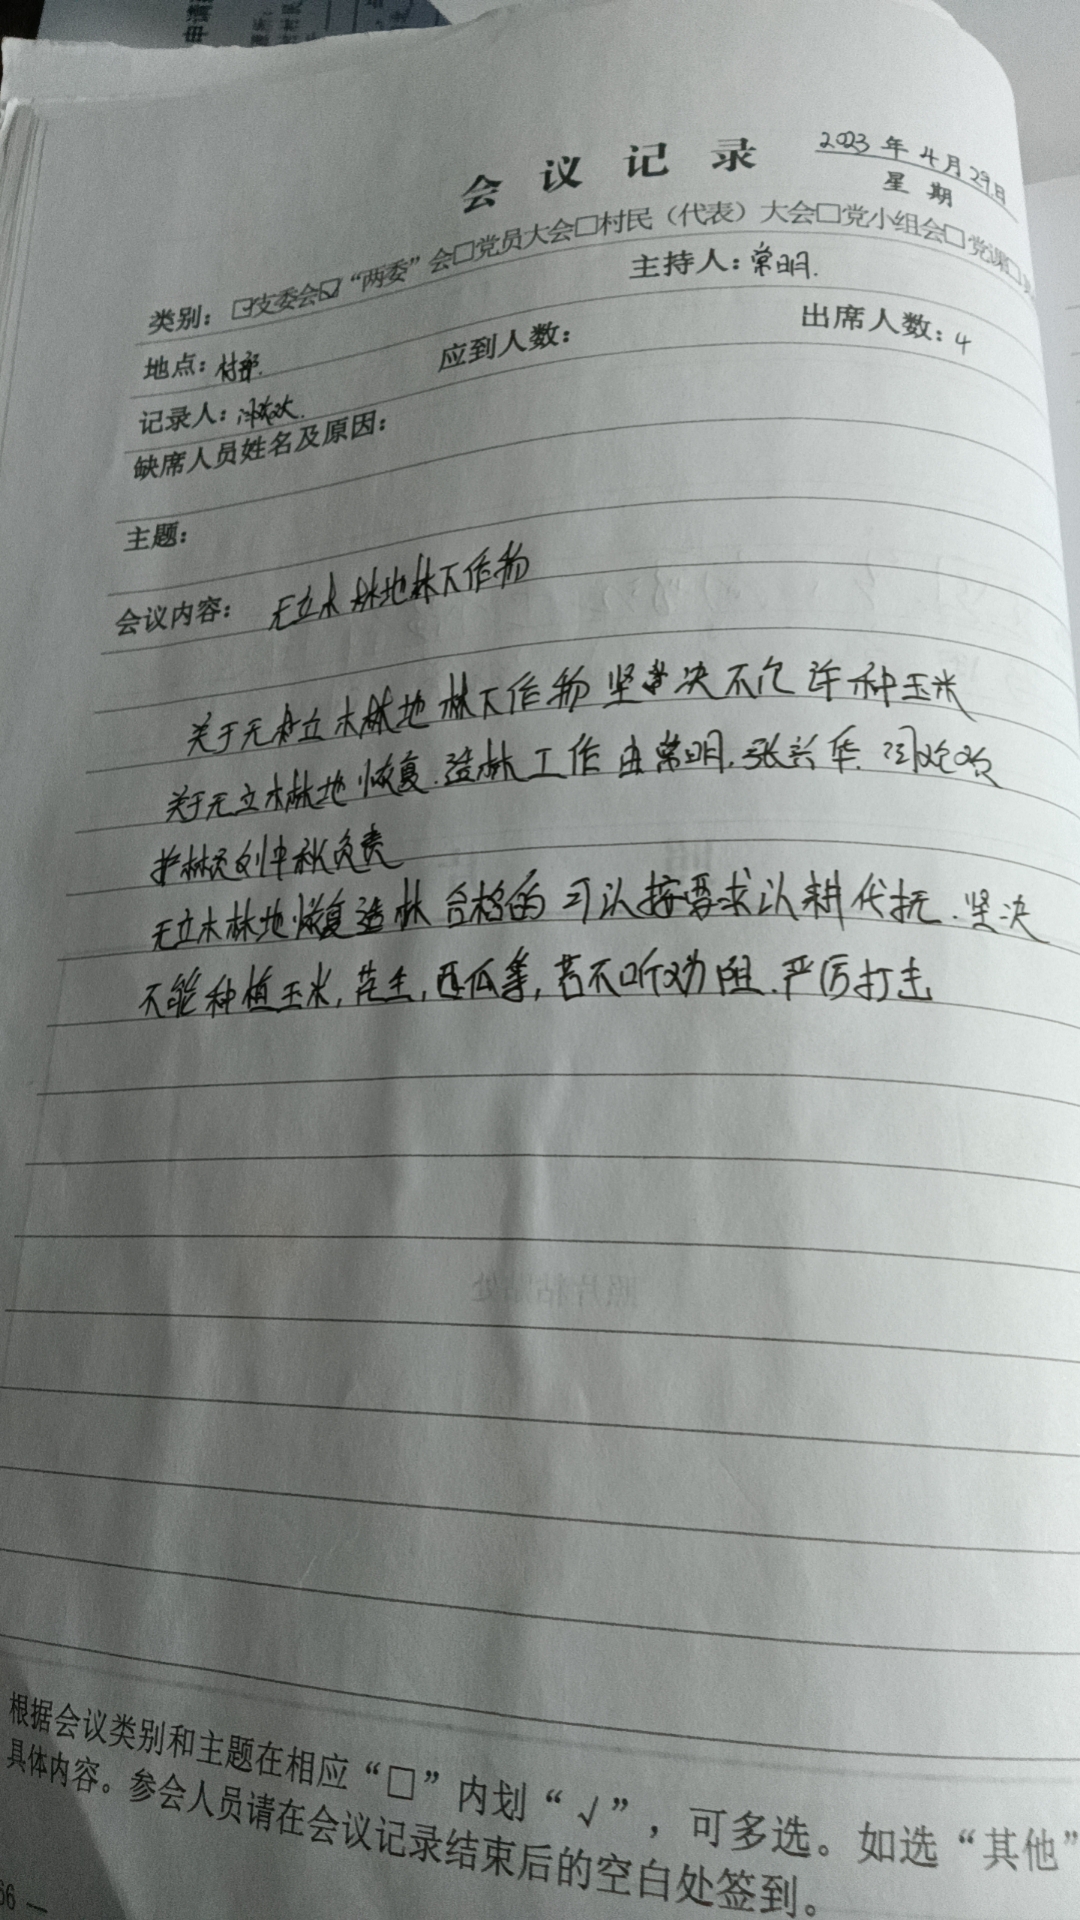 会议记录
2023年4月29日
星期
类别：☑支委会☑“两委”会□党员大会□村民（代表）大会□党小组会□党课□
地点：村部.
主持人：常明.
记录人：
应到人数：
出席人数：4
缺席人员姓名及原因：
主题：
会议内容：无立木林地林下作物
关于无立木林地林下作物坚决不允许种玉米
关于无立木林地恢复.造林工作由常明.张兴华.闫欢欢
护林员刘中秋负责
无立木林地恢复造林合格的可以按要求以耕代抚.坚决
不能种植玉米,花生,西瓜等,若不听劝阻.严厉打击
根据会议类别和主题在相应“□”内划“√”，可多选。如选“其他”
具体内容。参会人员请在会议记录结束后的空白处签到。
66 —